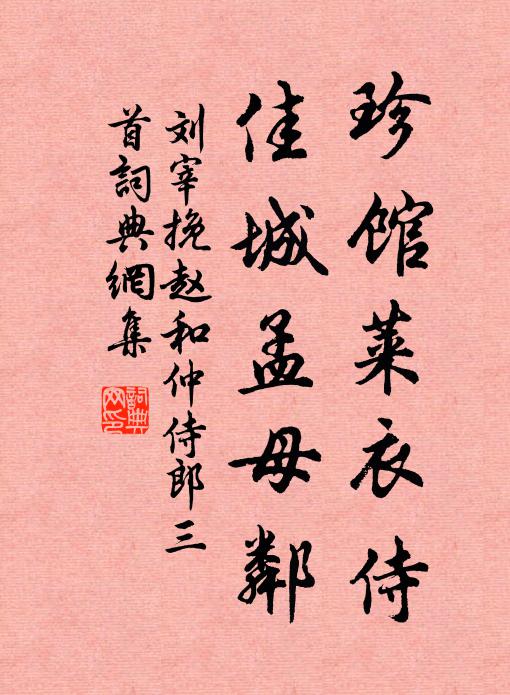 珍馆莱衣侍
佳城孟母鄰
刘宰挽赵和仲侍郎三
首詞典網集
詞典
网印